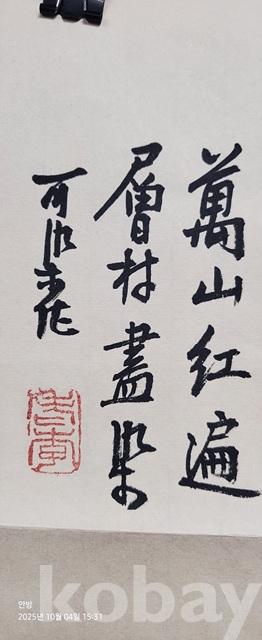 萬山红遍
層林盡染
可染作
안방
2025년 10월 04일 15:31
kobay